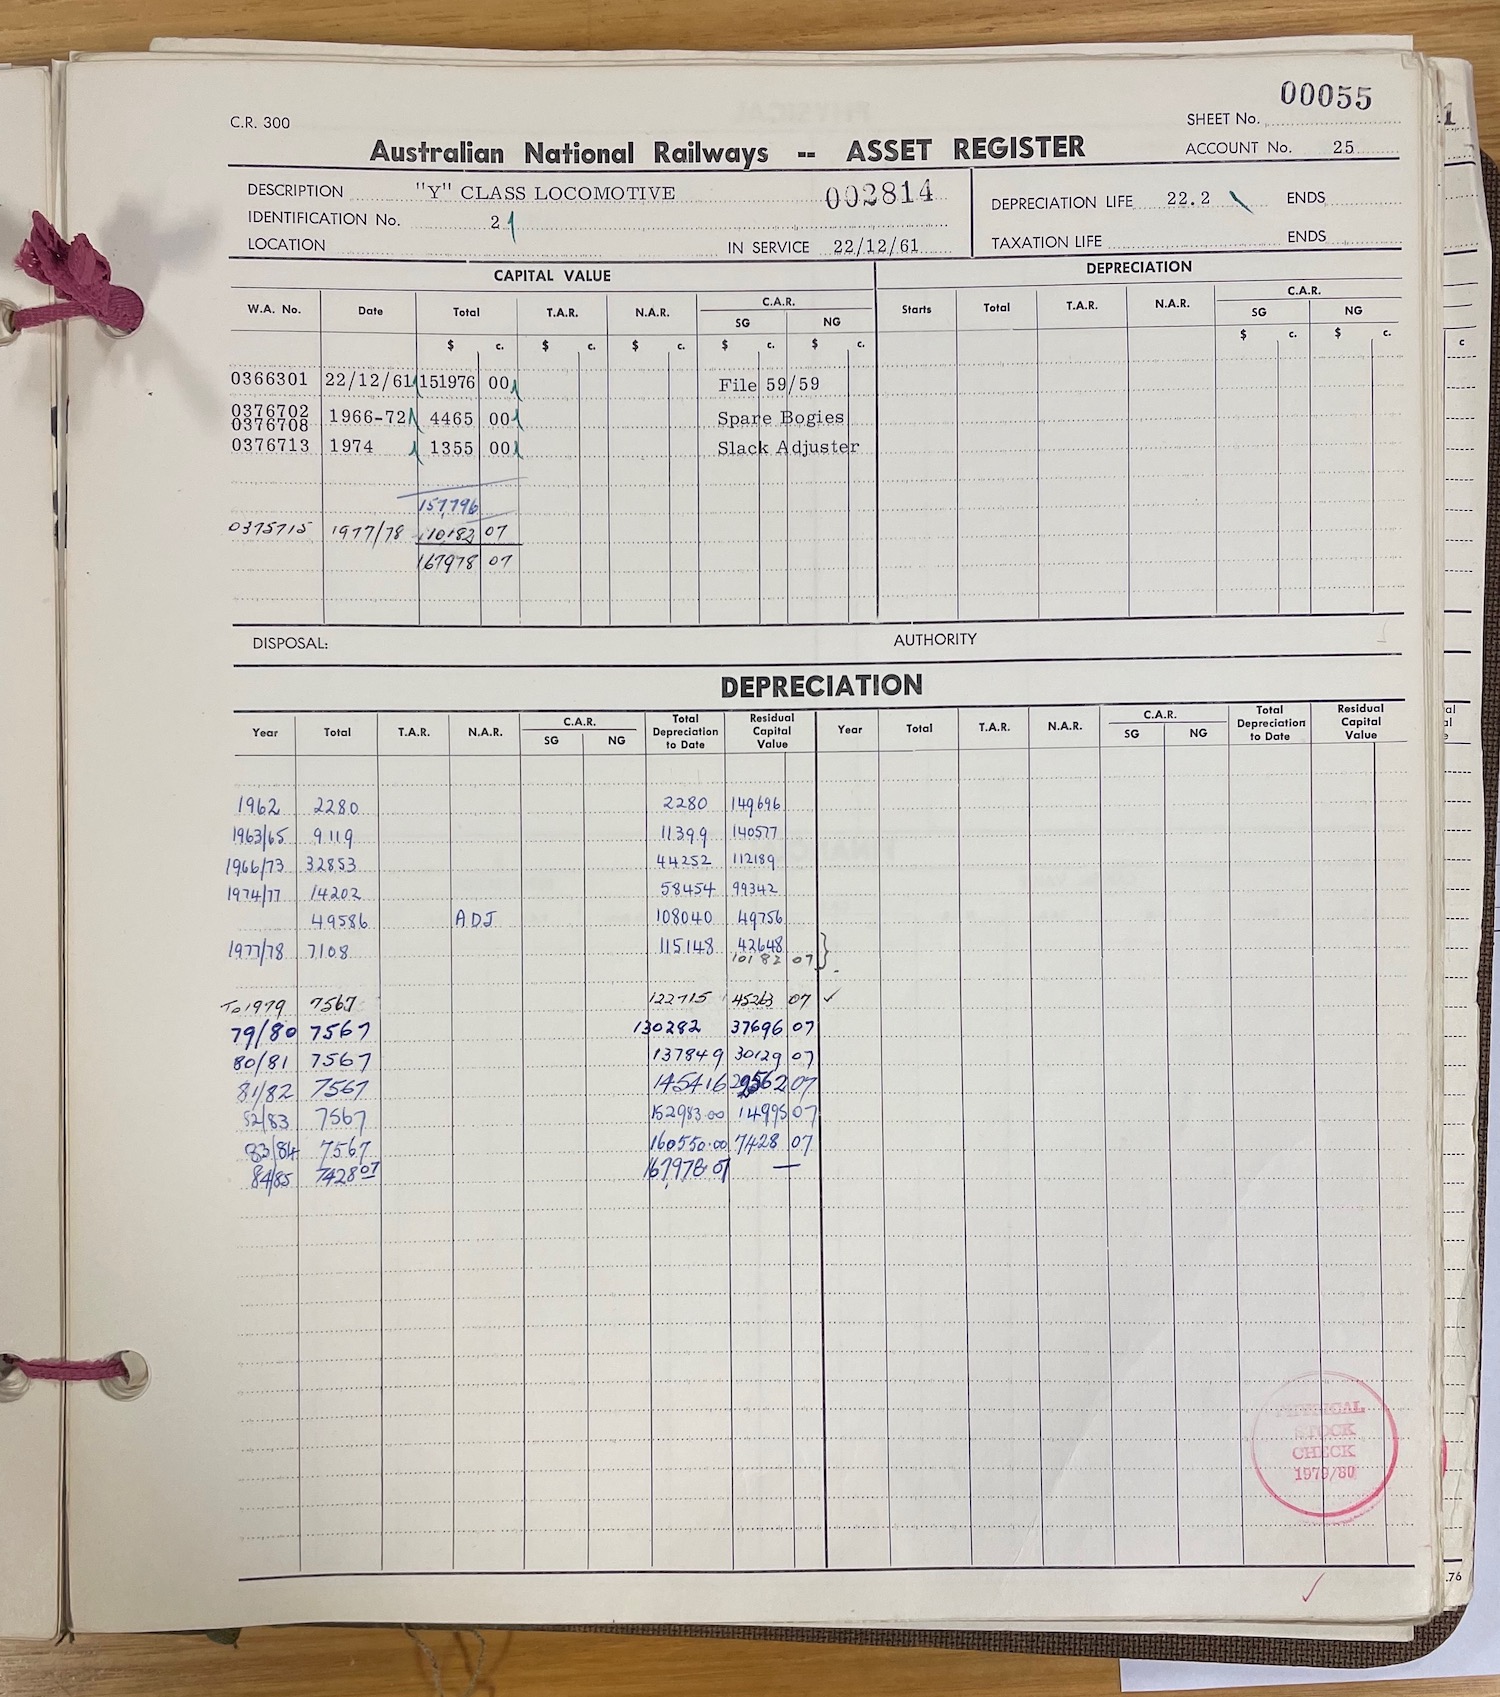 00055
C.R. 300
SHEET No.
Australian National Railways -- ASSET REGISTER
ACCOUNT No. 25
DESCRIPTION "Y" CLASS LOCOMOTIVE 002814
DEPRECIATION LIFE 22.2 ENDS
IDENTIFICATION No. 2
LOCATION IN SERVICE 22/12/61
TAXATION LIFE ENDS
CAPITAL VALUE DEPRECIATION
W.A. No. Date Total T.A.R. N.A.R. C.A.R. Starts Total T.A.R. N.A.R. C.A.R.
SG NG SG NG
$ c. $ c. $ c. $ c. $ c. $ c. $ c.
0366301 22/12/61 151976 00 File 59/59
0376702
0376708 1966-72 4465 00 Spare Bogies
0376713 1974 1355 00 Slack Adjuster
157796
0375715 1977/78 10182 07
167978 07
DISPOSAL: AUTHORITY
DEPRECIATION
Year Total T.A.R. N.A.R. C.A.R. Total Depreciation to Date Residual Capital Value Year Total T.A.R. N.A.R. C.A.R. Total Depreciation to Date Residual Capital Value
SG NG SG NG
1962 2280 2280 149696
1963/65 9119 11399 140577
1966/73 32853 44252 112189
1974/77 14202 58454 99342
49586 ADJ 108040 49756
1977/78 7108 115148 42648
10182 07
To 1979 7567 122715 45263 07
79/80 7567 130282 37696 07
80/81 7567 137849 30129 07
81/82 7567 145416 07
82/83 7567 152983.00 14995 07
83/84 7567 160550.00 7428 07
84/85 7428 07 167978.07 —
PHYSICAL
STOCK
CHECK
1979/80
.76